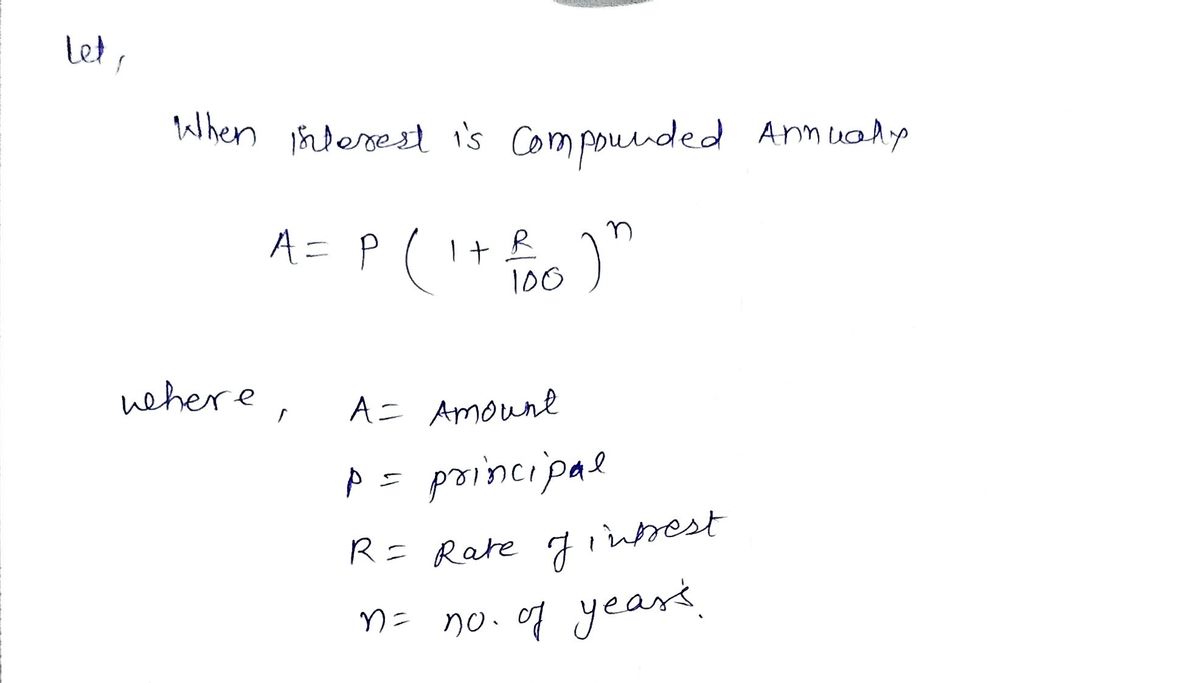 Let,
When interest is Compounded Annually
A = P ( 1 + R/100 )^n
where, A = Amount
P = principal
R = Rate of intrest
n = no. of years.